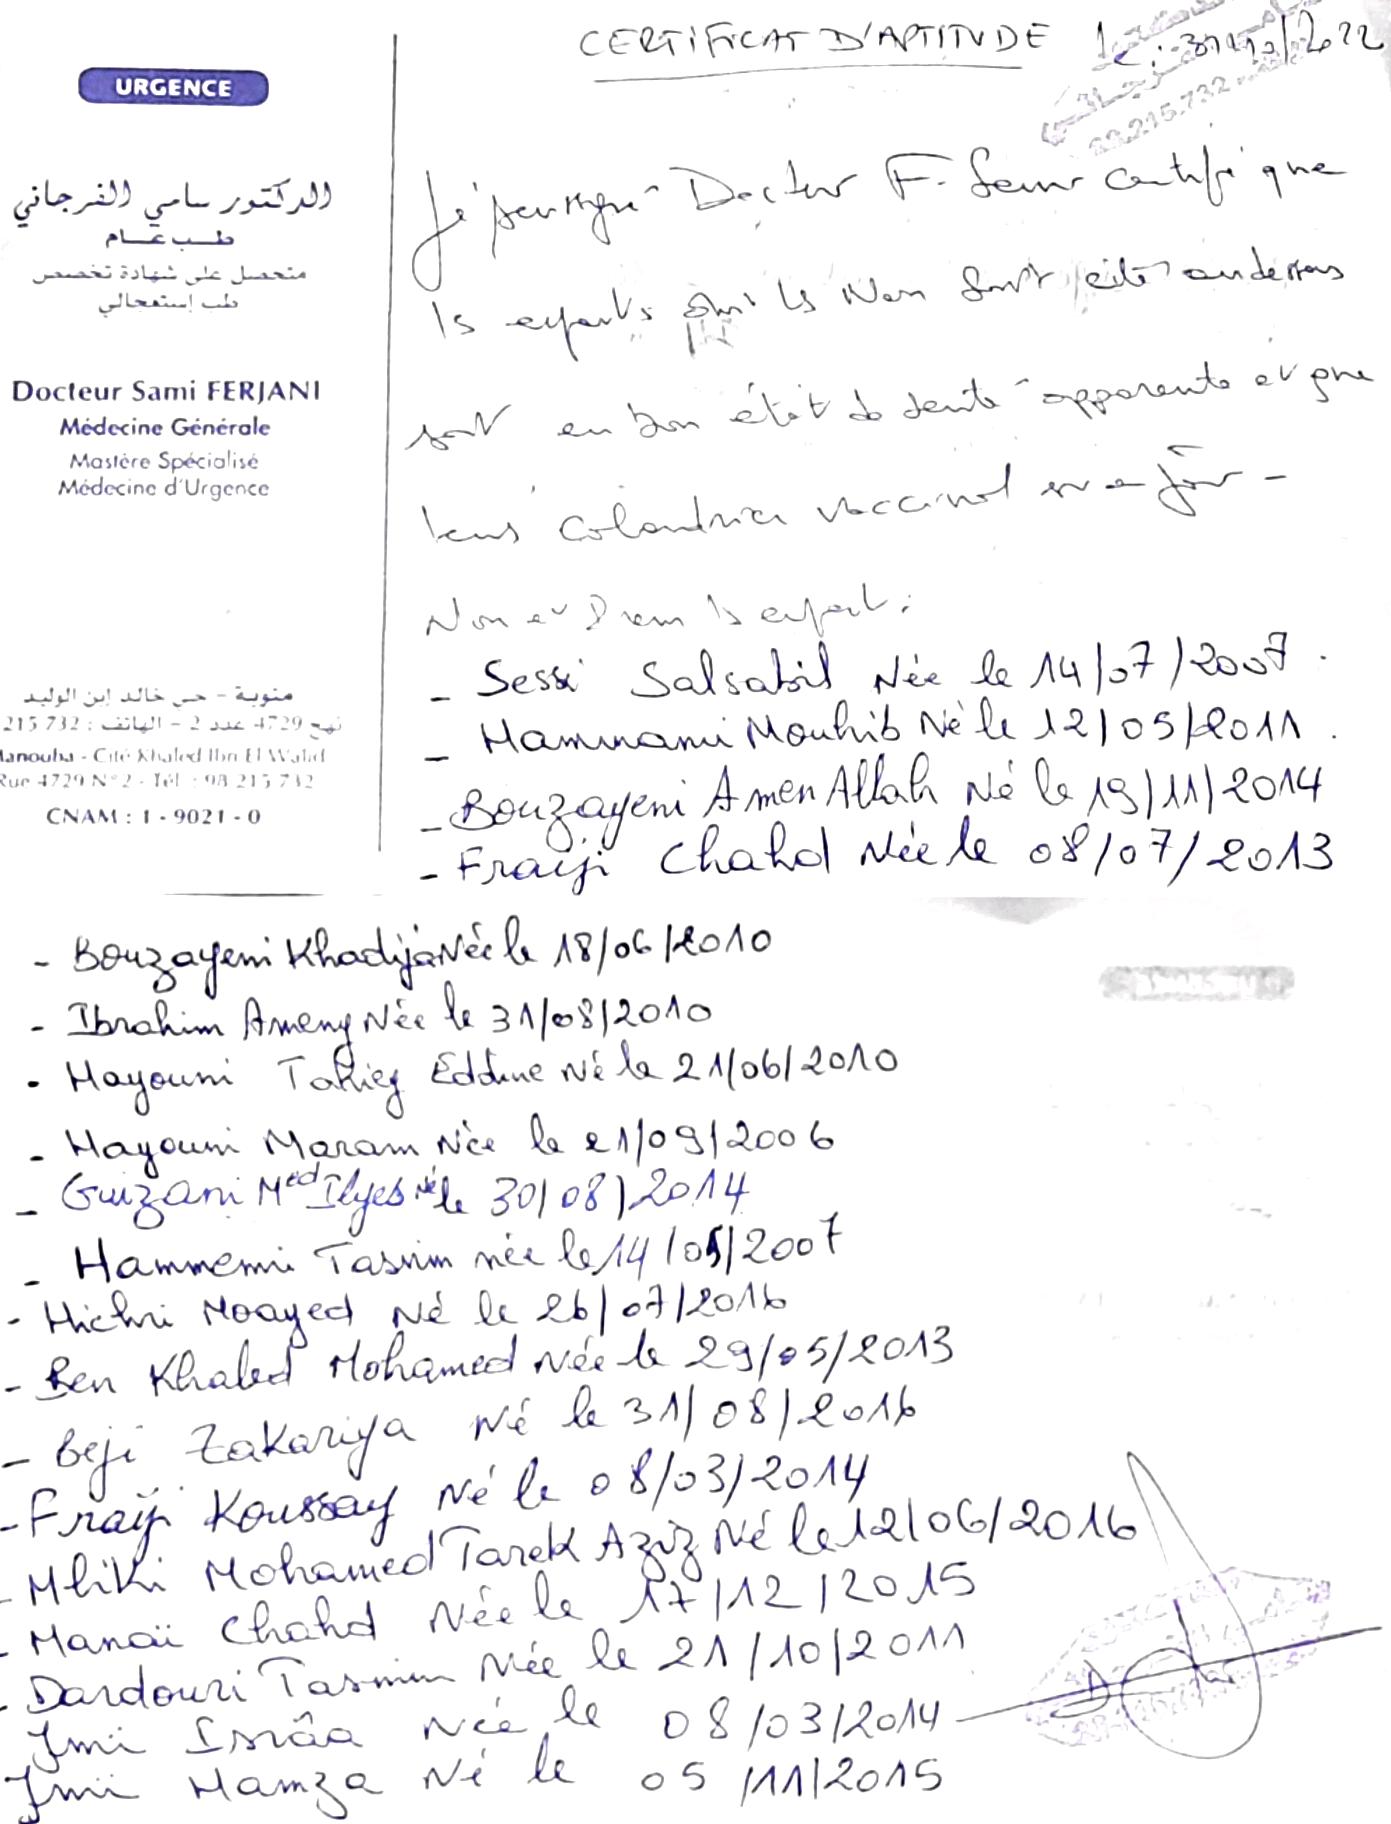 URGENCE
الدكتور سامي الفرجاني
طب عام
متحصل على شهادة تخصص
طب إستعجالي
Docteur Sami FERJANI
Médecine Générale
Mastère Spécialisé
Médecine d'Urgence
منوبة - حي خالد إبن الوليد
نهج 4729 عدد 2 - الهاتف : 215 732
Manouba - Cité Khaled Ibn El Walid
Rue 4729 N°2 - Tél : 98 215 732
CNAM : 1 - 9021 - 0
CERTIFICAT D'APTITUDE le : /2022
Je soussigné Docteur F. Sami certifie que
ls enfants dont ls Nom sont cités audessous
sont en bon état de santé apparente et que
leurs calendrier vaccinal est a jour -
Nom et Prenom ls enfant :
- Sessi Salsabil Née le 14/07/2007.
- Hammami Mouhib Né le 12/05/2011.
- Bouzayeni Amen Allah Né le 19/11/2014
- Fraiji Chahd Née le 08/07/2013
- Bouzayeni Khadija Née le 18/06/2010
- Ibrahim Ameny Née le 31/08/2010
- Hayouni Takiey Eddine Né le 21/06/2010
- Hayouni Maram Née le 21/09/2006
- Guizani Med Ilyes Né le 30/08/2014
- Hammemi Tasnim née le 14/05/2007
- Hichri Moayed Né le 26/07/2016
- Ben Khaled Mohamed Née le 29/05/2013
- Beji Zakariya Né le 31/08/2016
- Fraiji Koussay Né le 08/03/2014
- Mliki Mohamed Tarek Aziz Né le 12/06/2016
- Manaï Chahd Née le 17/12/2015
- Dardouri Tasnim Née le 21/10/2011
Jmii Israa Née le 08/03/2014
Jmii Hamza Né le 05/11/2015